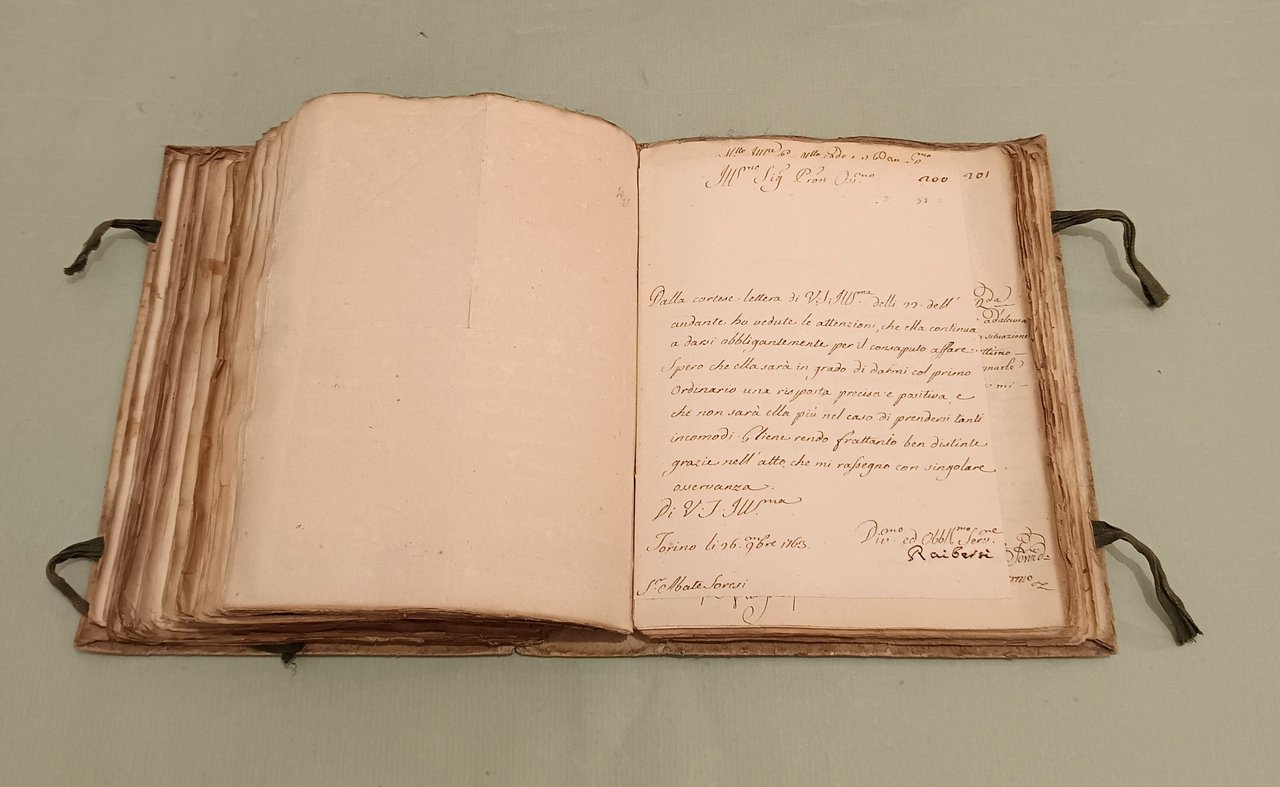 Ill.mo Sig.r Pron Oss.mo
200 201
Dalla cortese lettera di V. S. Ill.ma delli 22. dell'
andante ho vedute le attenzioni, che ella continua
a darsi obbligantemente per il consaputo affare.
Spero che ella sarà in grado di darmi col primo
Ordinario una risposta precisa e positiva, e
che non sarà ella più nel caso di prendersi tanti
incomodi. Gliene rendo frattanto ben distinte
grazie nell' atto, che mi rassegno con singolare
osservanza.
Di V. S. Ill.ma
Torino li 26. 9bre 1763.
Div.mo ed Obbl.mo Serv.re
Raiberti
S.r Abate Soresi
situazione